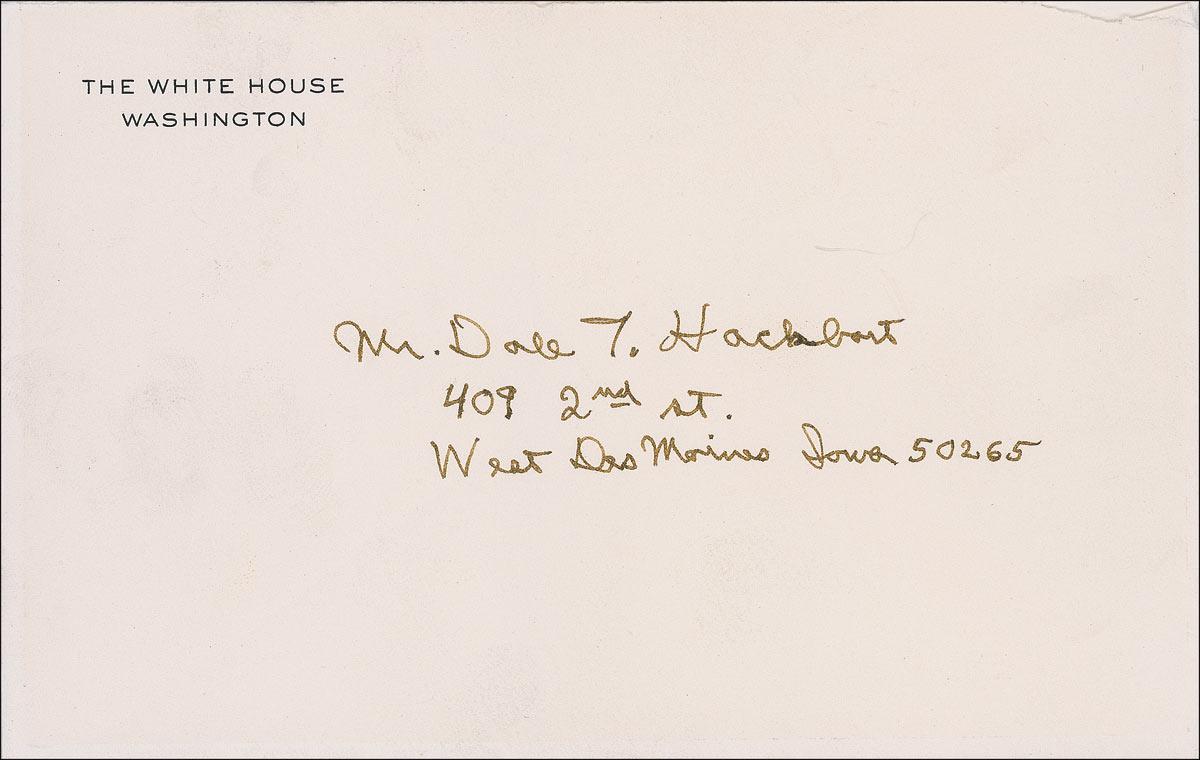 THE WHITE HOUSE
WASHINGTON
Mr. Dale T. Hackbart
409 2nd st.
West Des Moines Iowa 50265